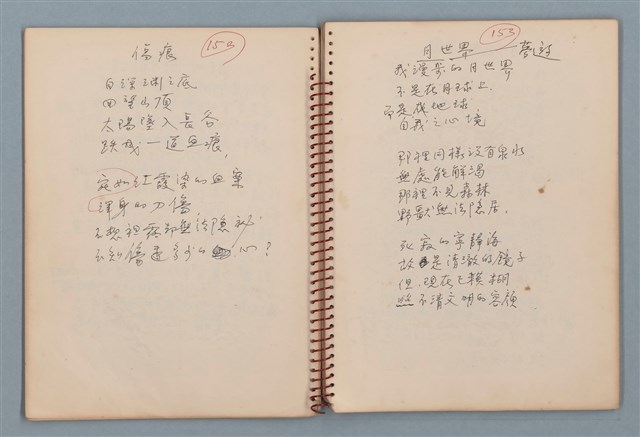 傷痕
153
自深淵之底
回望山頂
太陽墜入長谷
跌成一道血痕,
宛如紅霞染的血案
渾身的刀傷
不想裸露卻無法隱祕
不知傷還多少的心?
153
月世界
我漫步的月世界
不是在月球上
而是在地球
自我之心境
那裡同樣沒有泉水
無處能解渴
那裡不見森林
野獸無法隱居,
死寂的寧靜海
故是清澈的鏡子
但現在已模糊
照不清文明的容顏